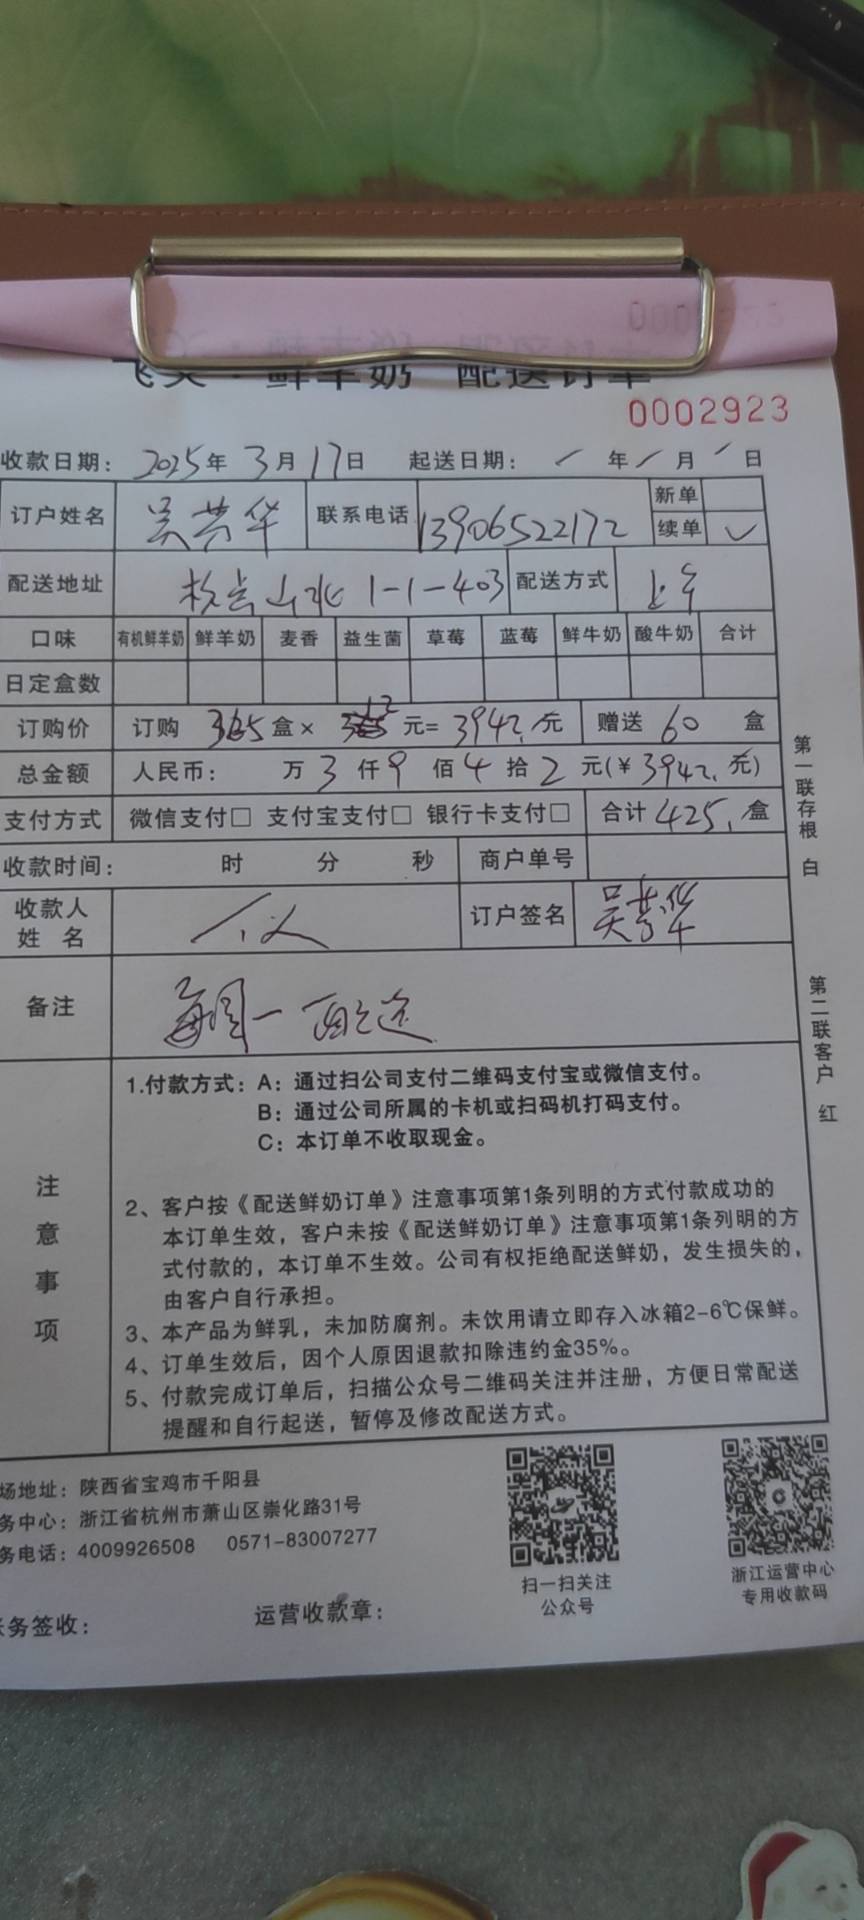 鲜羊奶 配送订单
0002923
收款日期： 2025年 3月 17日 起送日期： / 年 / 月 / 日
订户姓名 吴芳华 联系电话 13906522172 新单
续单 ✓
配送地址 1-1-403 配送方式 上午
口味 有机鲜羊奶 鲜羊奶 麦香 益生菌 草莓 蓝莓 鲜牛奶 酸牛奶 合计
日定盒数
订购价 订购 365 盒× 元= 3942.元 赠送 60 盒
总金额 人民币： 万 3 仟 9 佰 4 拾 2 元(¥3942.元)
支付方式 微信支付□ 支付宝支付□ 银行卡支付□ 合计 425. 盒
收款时间： 时 分 秒 商户单号
收款人
姓 名 个人 订户签名 吴芳华
备注 每周一配送
注意事项
1.付款方式：A：通过扫公司支付二维码支付宝或微信支付。
B：通过公司所属的卡机或扫码机打码支付。
C：本订单不收取现金。
2、客户按《配送鲜奶订单》注意事项第1条列明的方式付款成功的
本订单生效，客户未按《配送鲜奶订单》注意事项第1条列明的方
式付款的，本订单不生效。公司有权拒绝配送鲜奶，发生损失的，
由客户自行承担。
3、本产品为鲜乳，未加防腐剂。未饮用请立即存入冰箱2-6℃保鲜。
4、订单生效后，因个人原因退款扣除违约金35%。
5、付款完成订单后，扫描公众号二维码关注并注册，方便日常配送
提醒和自行起送，暂停及修改配送方式。
第一联存根 白
第二联客户 红
场地址：陕西省宝鸡市千阳县
务中心：浙江省杭州市萧山区崇化路31号
务电话：4009926508 0571-83007277
扫一扫关注
公众号
浙江运营中心
专用收款码
务签收： 运营收款章：